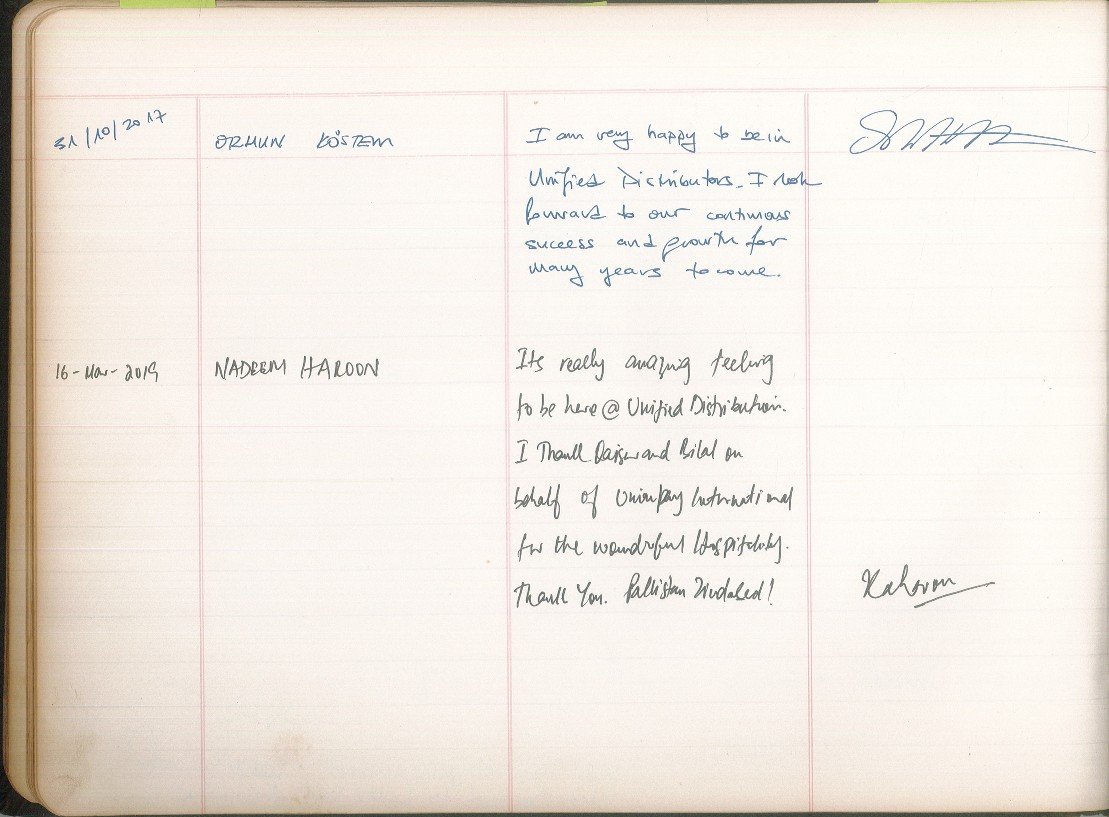 31/10/2017
ORHUN KÖSTEM
I am very happy to be in
Unified Distributors. I look
forward to our continuous
success and growth for
many years to come.
16-Mar-2019
NADEEM HAROON
Its really amazing feeling
to be here @ Unified Distribution.
I Thank and Bilal on
behalf of Unionpay International
for the wonderful Hospitality.
Thank You. Pakistan Zindabad!